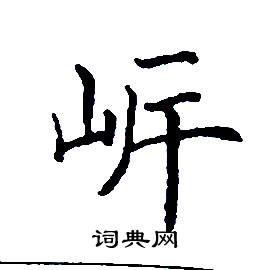 岍
词典网